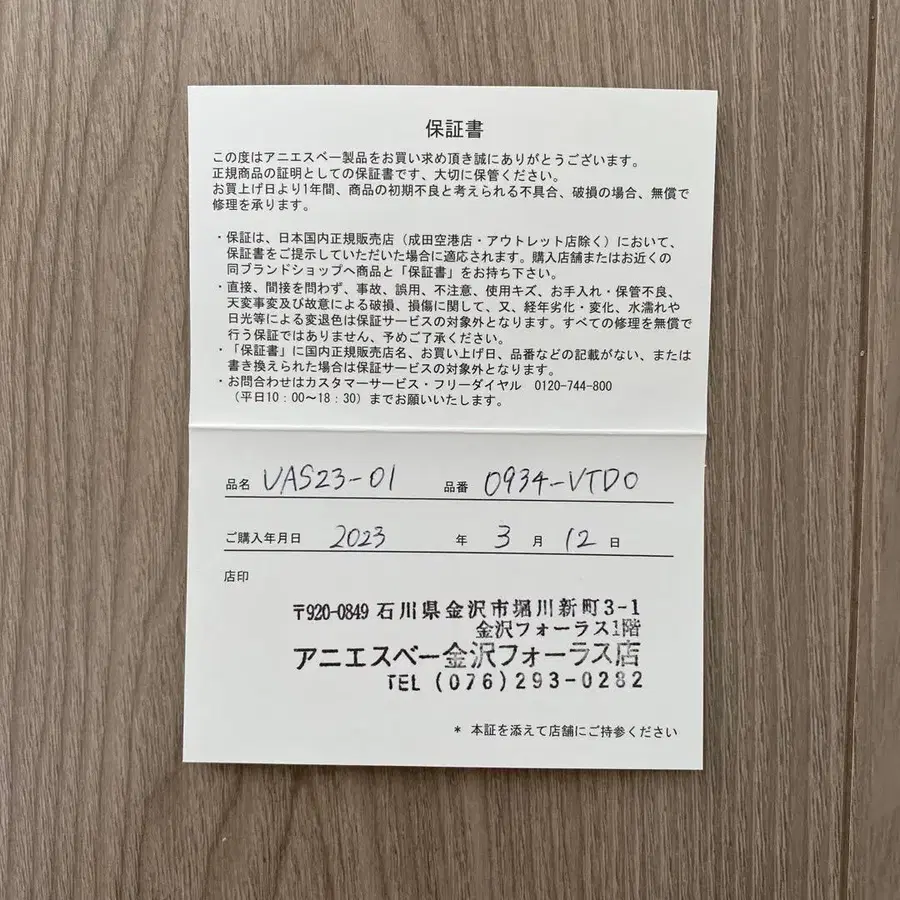 保証書
この度はアニエスベー製品をお買い求め頂き誠にありがとうございます。
正規商品の証明としての保証書です、大切に保管ください。
お買上げ日より1年間、商品の初期不良と考えられる不具合、破損の場合、無償で
修理を承ります。
・保証は、日本国内正規販売店（成田空港店・アウトレット店除く）において、
保証書をご提示していただいた場合に適応されます。購入店舗またはお近くの
同ブランドショップへ商品と「保証書」をお持ち下さい。
・直接、間接を問わず、事故、誤用、不注意、使用キズ、お手入れ・保管不良、
天変事変及び故意による破損、損傷に関して、又、経年劣化・変化、水濡れや
日光等による変退色は保証サービスの対象外となります。すべての修理を無償で
行う保証ではありません、予めご了承ください。
・「保証書」に国内正規販売店名、お買い上げ日、品番などの記載がない、または
書き換えられた場合は保証サービスの対象外となります。
・お問合わせはカスタマーサービス・フリーダイヤル 0120-744-800
（平日10：00〜18：30）までお願いいたします。
品名 VAS23-01 品番 0934-VTDO
ご購入年月日 2023 年 3 月 12 日
店印
〒920-0849 石川県金沢市堀川新町3-1
金沢フォーラス1階
アニエスベー金沢フォーラス店
TEL (076)293-0282
* 本証を添えて店舗にご持参ください